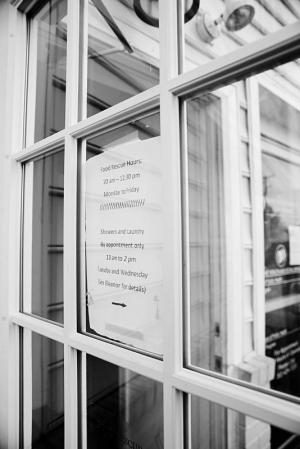 Food Rescue Hours:
10 am – 12:30 pm
Monday to Friday
//////////////
Showers and Laundry
By appointment only
10 am to 2 pm
Tuesday and Wednesday
(See Eleanor for details)